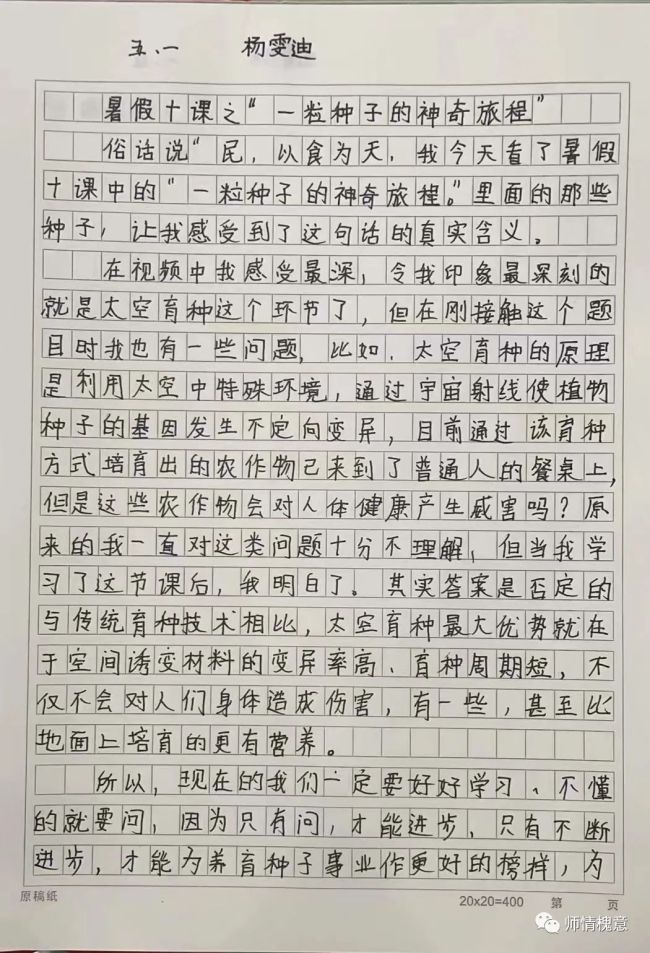 五.一 杨雯迪
暑假十课之“一粒种子的神奇旅程”
俗话说“民，以食为天，我今天看了暑假
十课中的“一粒种子的神奇旅程。”里面的那些
种子，让我感受到了这句话的真实含义。
在视频中我感受最深，令我印象最深刻的
就是太空育种这个环节了，但在刚接触这个题
目时我也有一些问题，比如、太空育种的原理
是利用太空中特殊环境，通过宇宙射线使植物
种子的基因发生不定向变异，目前通过该育种
方式培育出的农作物已来到了普通人的餐桌上，
但是这些农作物会对人体健康产生威害吗？原
来的我一直对这类问题十分不理解，但当我学
习了这节课后，我明白了。其实答案是否定的
与传统育种技术相比，太空育种最大优势就在
于空间诱变材料的变异率高、育种周期短，不
仅不会对人们身体造成伤害，有一些，甚至比
地面上培育的更有营养。
所以，现在的我们一定要好好学习、不懂
的就要问，因为只有问，才能进步，只有不断
进步，才能为养育种子事业作更好的榜样，为
原稿纸 20x20=400 第 页
师情槐意